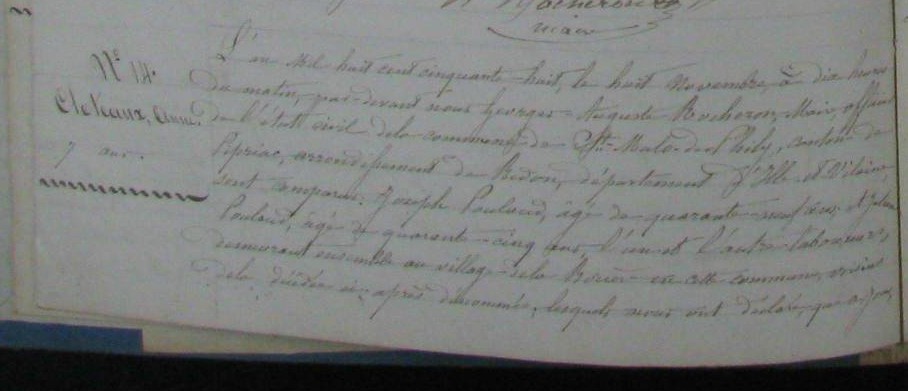 maire
N° 14.
Cleteaux, Anne.
7 ans.
L'an Mil huit cent cinquante-huit, le huit Novembre, à dix heures
du matin, par-devant nous Georges-Auguste Rocheron, Maire, officier
de l'état civil de la commune de St Malo-de-Phily, canton de
Pipriac, arrondissement de Redon, département d'Ille-et-Vilaine,
sont comparus, Joseph Poulain, âgé de quarante-neuf ans, et
Poulain, âgé de quarante-cinq ans, l'un et l'autre laboureurs,
demeurant ensemble au village de la en cette commune, voisins
de la décédée ci-après dénommée, lesquels nous ont déclaré, que